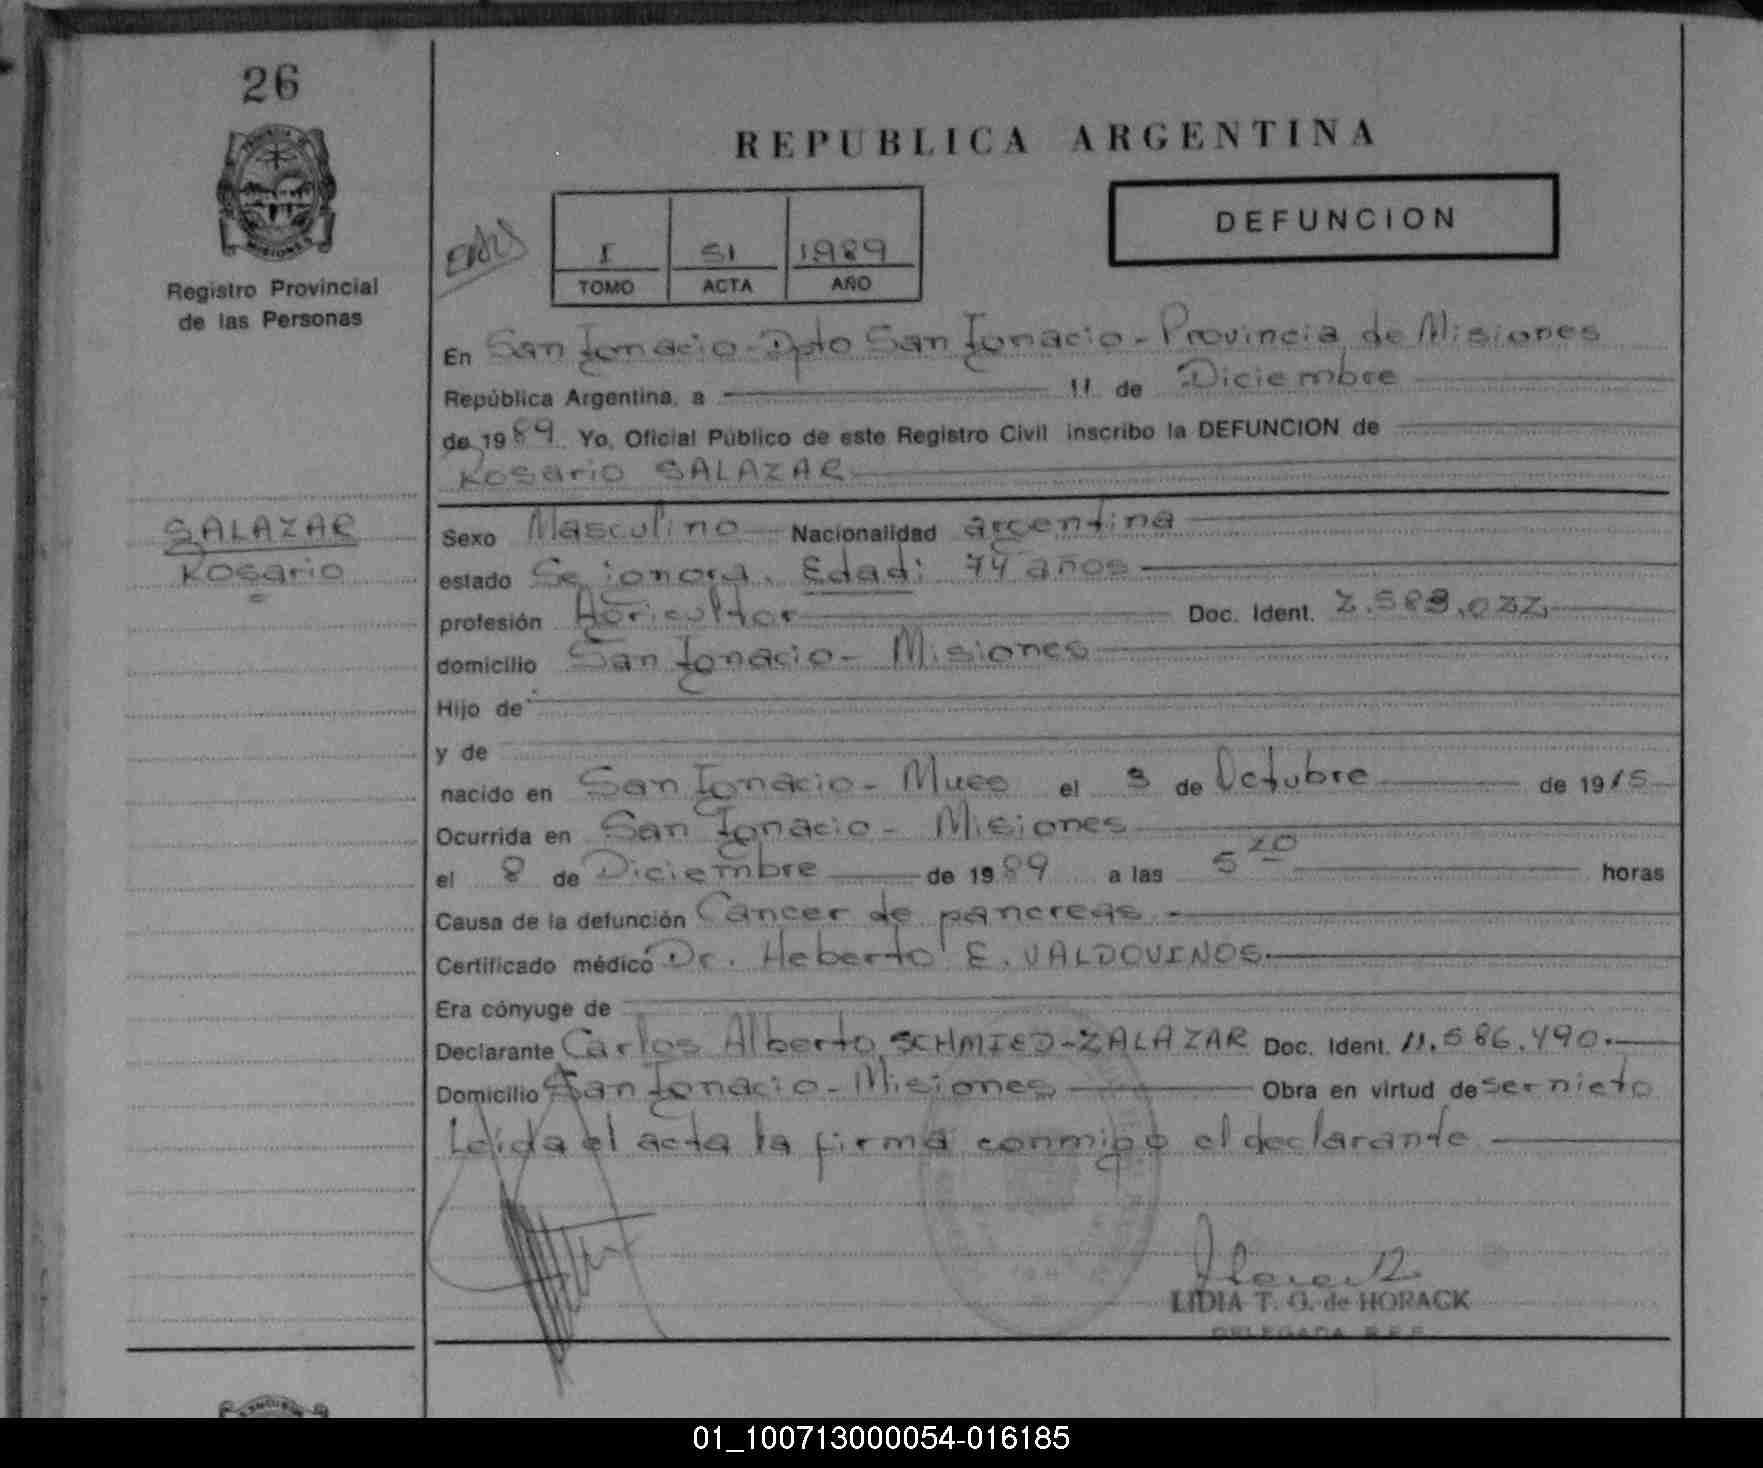 26
REPUBLICA ARGENTINA
DEFUNCION
I 51 1989
TOMO ACTA AÑO
Registro Provincial
de las Personas
En San Ignacio - Dpto San Ignacio - Provincia de Misiones
República Argentina, a 11 de Diciembre
de 1989 Yo, Oficial Público de este Registro Civil inscribo la DEFUNCION de
Rosario SALAZAR
SALAZAR
Rosario
Sexo Masculino Nacionalidad argentina
estado Se ignora. Edad: 74 años
profesión Agricultor Doc. Ident. 2.583.022
domicilio San Ignacio - Misiones
Hijo de
y de
nacido en San Ignacio - Mnes el 3 de Octubre de 1915
Ocurrida en San Ignacio - Misiones
el 8 de Diciembre de 1989 a las 5 20 horas
Causa de la defunción Cancer de pancreas
Certificado médico Dr. Heberto E. VALDOVINOS
Era cónyuge de
Declarante Carlos Alberto SCHMIED-ZALAZAR Doc. Ident. 11.586.490
Domicilio San Ignacio - Misiones Obra en virtud de ser nieto
Leída el acta la firma conmigo el declarante
LIDIA T. G. de HORACK
DELEGADA
01_100713000054-016185